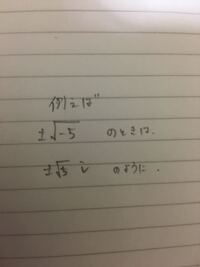 例えば
±√-5 のときは.
±√5 i のように.